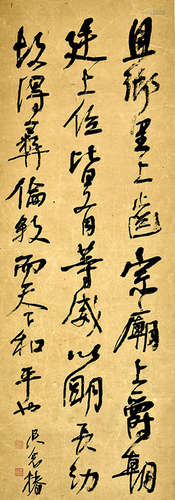 且鄉里上齒宗廟上爵朝
廷上位皆有等威以明長幼
故得彝倫敘而天下和平也
吳念椿